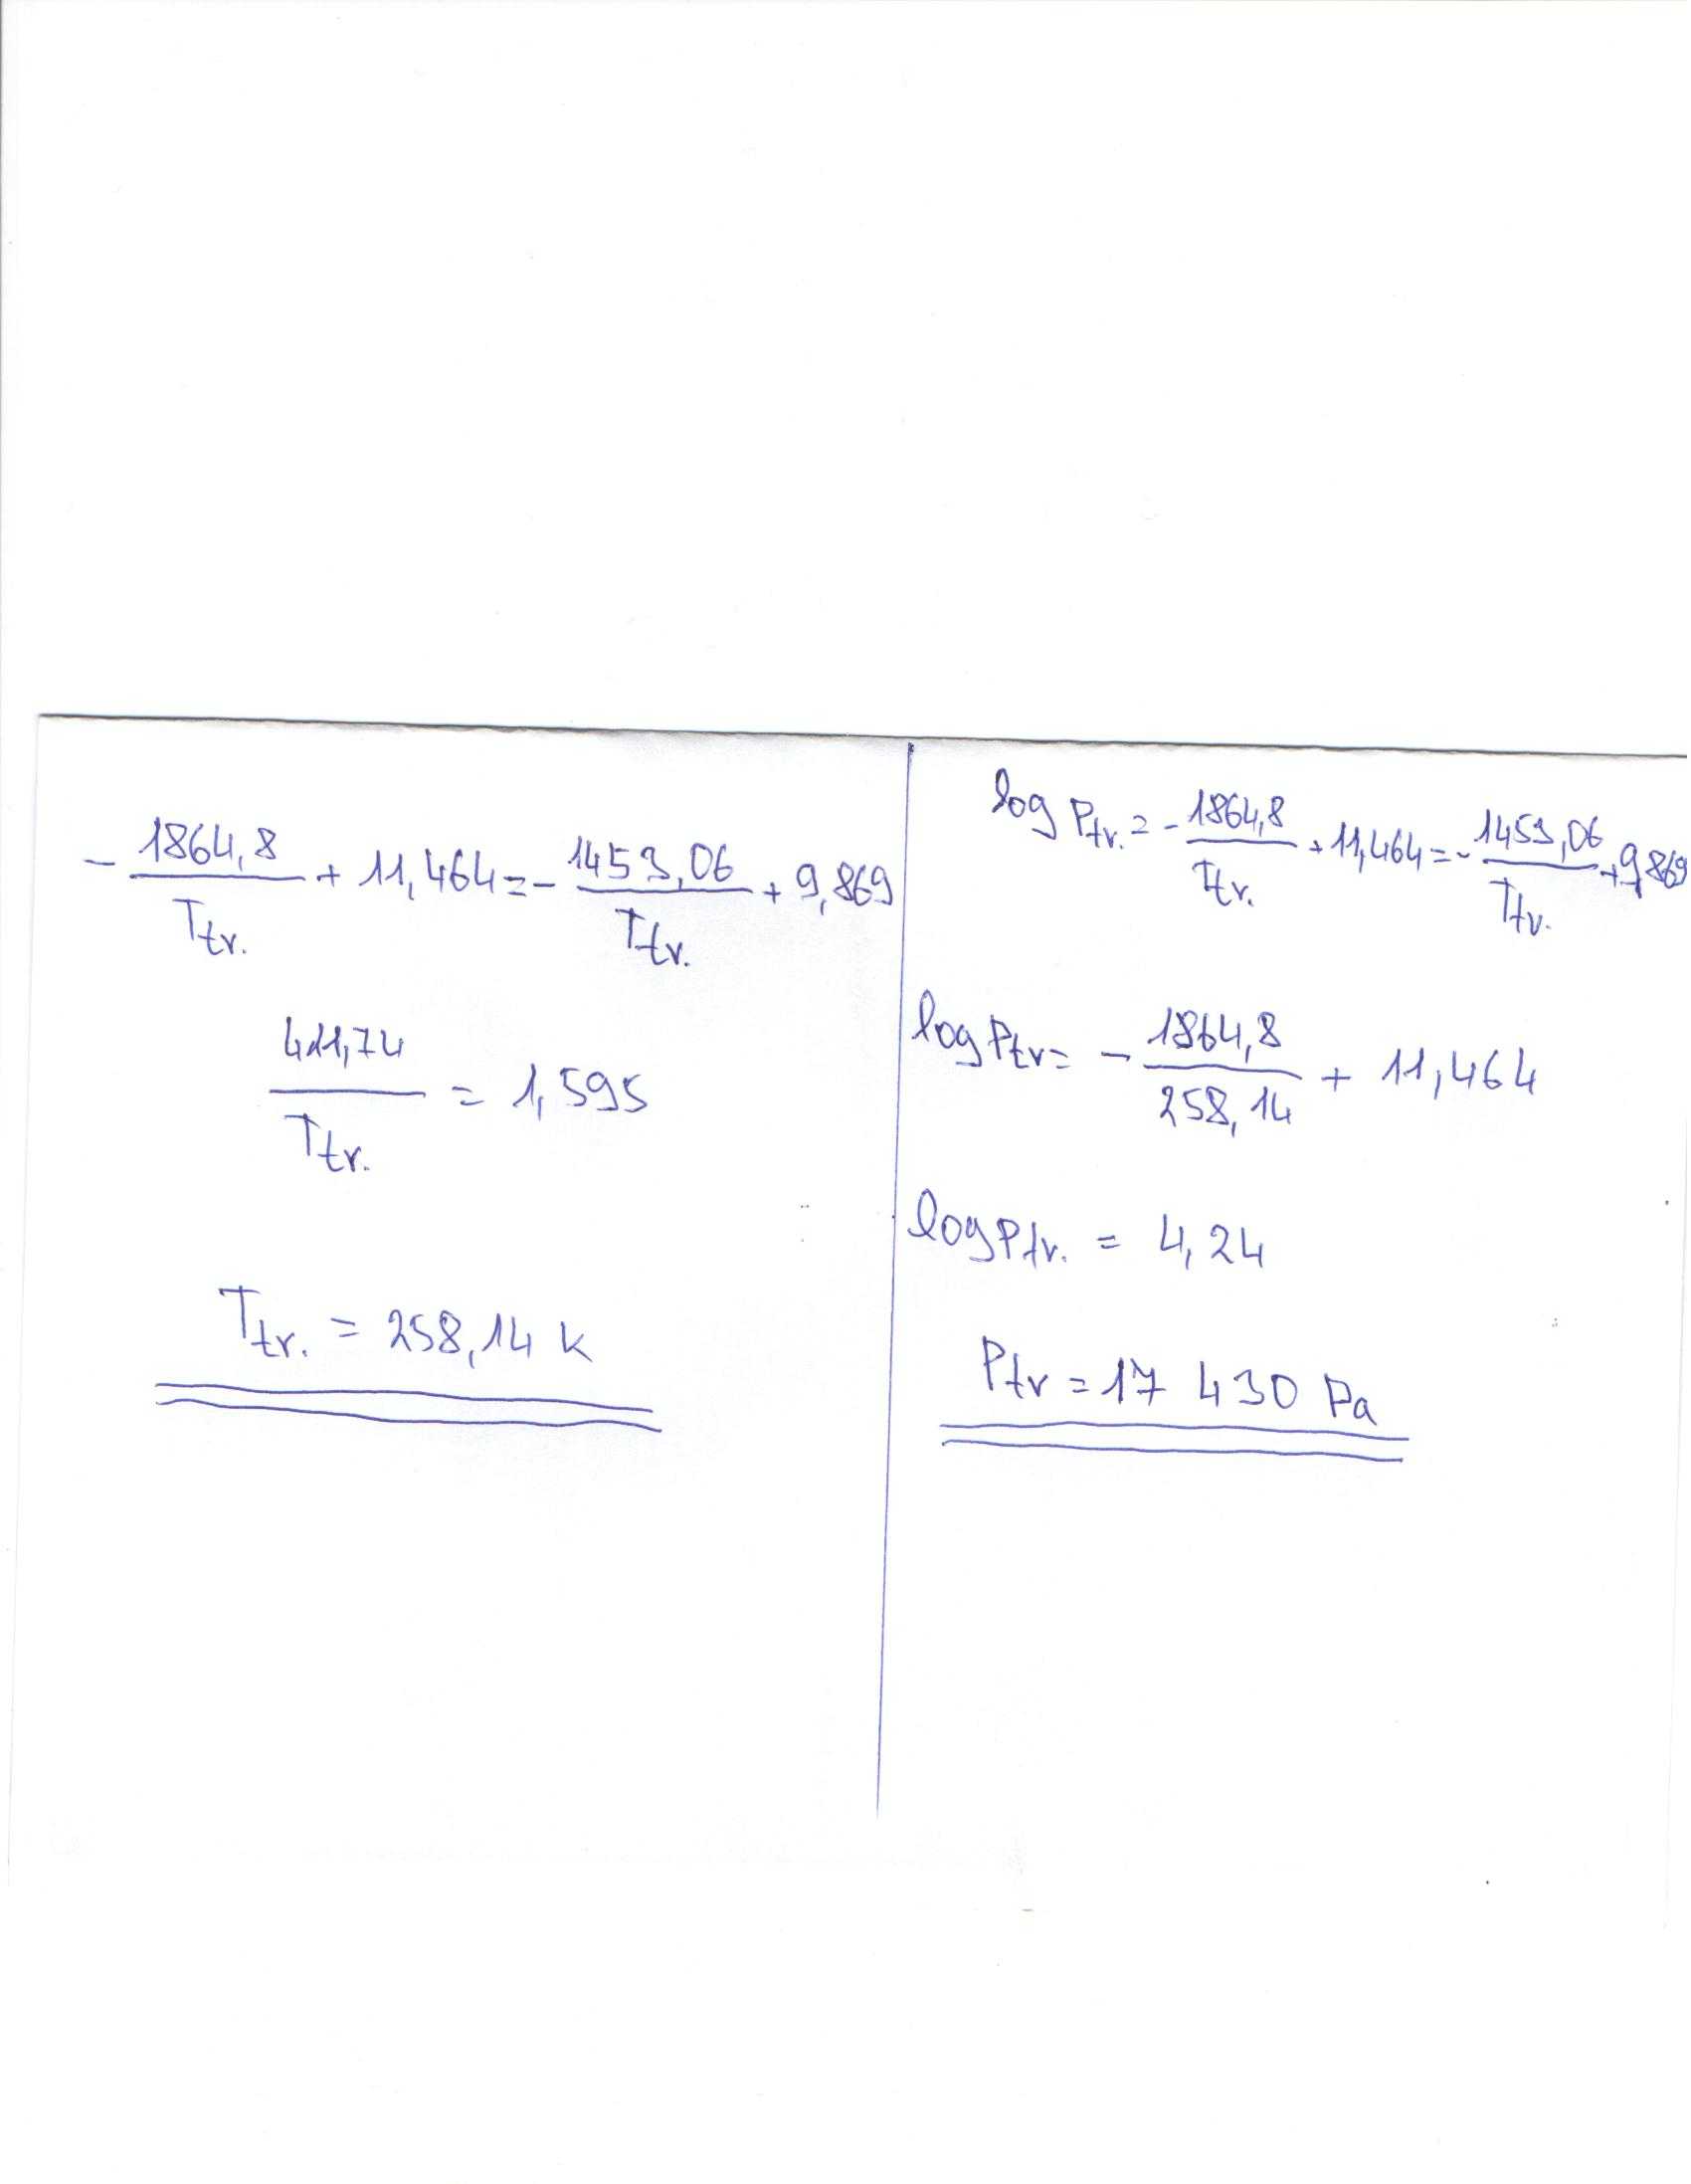 - 1864,8 / Ttr. + 11,464 = - 1453,06 / Ttr. + 9,869
411,74 / Ttr. = 1,595
Ttr. = 258,14 K
log Ptr. = - 1864,8 / Ttr. + 11,464 = - 1453,06 / Ttr. + 9,869
log Ptr = - 1864,8 / 258,14 + 11,464
log Ptr. = 4,24
Ptr = 17 430 Pa